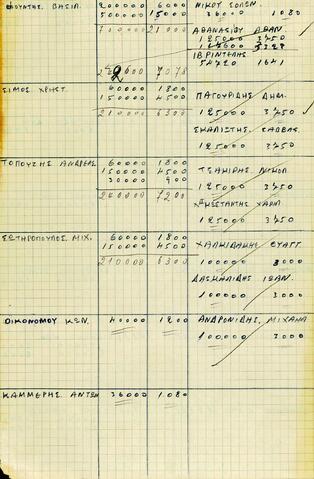 ΒΑΣΙΛ. 200000 6000 ΝΙΚΟΥ ΣΟΛΩΝ.
500000 15000 36000 1080
700000 21000 ΑΘΑΝΑΣΙΟΥ ΑΘΑΝ.
125000 3750
ΙΒΡΙΝΤΕΛΗΣ
7078 54720 1641
ΣΙΜΟΣ ΧΡΗΣΤ. 60000 1800
150000 4500 ΠΑΓΟΥΡΙΔΗΣ ΔΗΜ.
210000 6300 125000 3750
ΣΑΒΒΑΣ
125000 3750
ΤΟΠΟΥΖΗΣ ΑΝΔΡΕΑΣ 60000 1800
150000 4500 ΤΣΑΚΙΡΗΣ
30000 900 125000 3750
240000 7200 ΧΑΡΑΛ
125000 3750
ΣΩΤΗΡΟΠΟΥΛΟΣ ΜΙΧ. 60000 1800
150000 4500 ΧΑΛΚΙΔΑΚΗΣ ΕΥΑΓΓ.
210000 6300 100000 3000
ΔΑΣΚΑΛΙΔΗΣ ΙΩΑΝ.
100000 3000
ΟΙΚΟΝΟΜΟΥ ΚΩΝ. 40000 1200 ΑΝΔΡΟΝΙΔΗΣ ΜΙΧΑΗΛ
100000 3000
ΚΑΜΜΕΡΗΣ ΑΝΤΩΝ 36000 1080